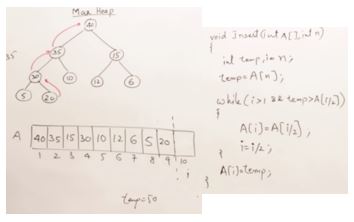 Max Heap
40
35
35
15
30
10
12
6
5
20
A
40 35 15 30 10 12 6 5 20
1 2 3 4 5 6 7 8 9 10
i
temp=50
void Insert(int A[], int n)
{
int temp, i=n;
temp=A[n];
while(i>1 && temp>A[i/2])
{
A[i]=A[i/2];
i=i/2;
}
A[i]=temp;